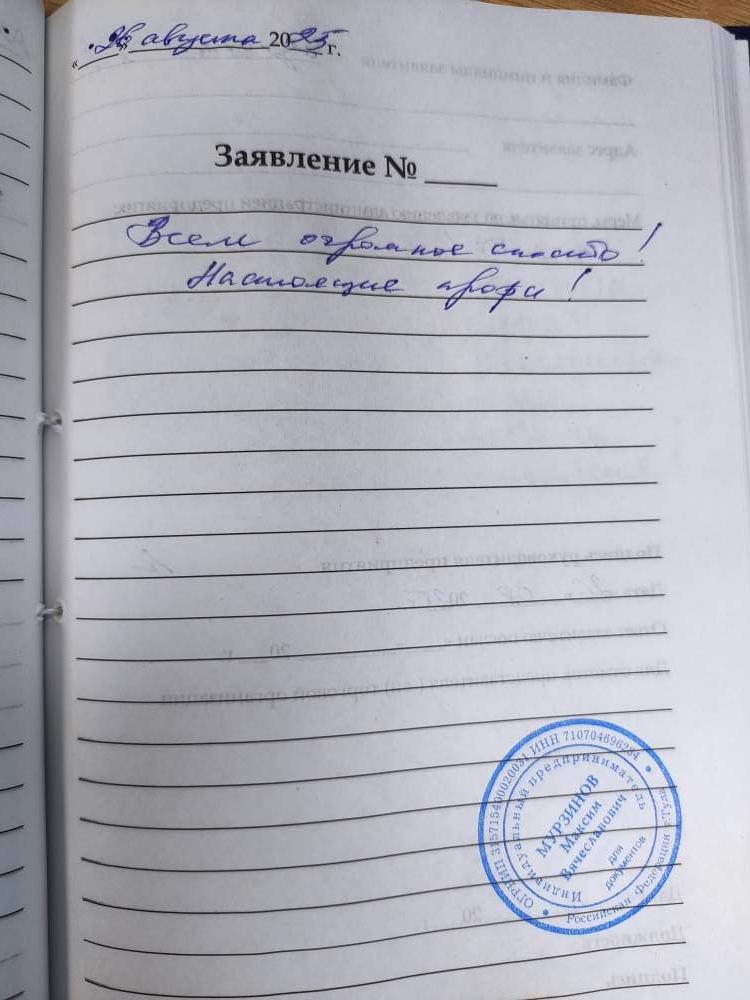 « 26 » августа 2025 г.
Заявление № ____
Всем огромное спасибо!
Настоящие профи!
ОГРНИП 315715400020031 ИНН 710704696284
Российская Федерация г.Тула
Индивидуальный предприниматель
МУРЗИНОВ
Максим
Вячеславович
для
документов